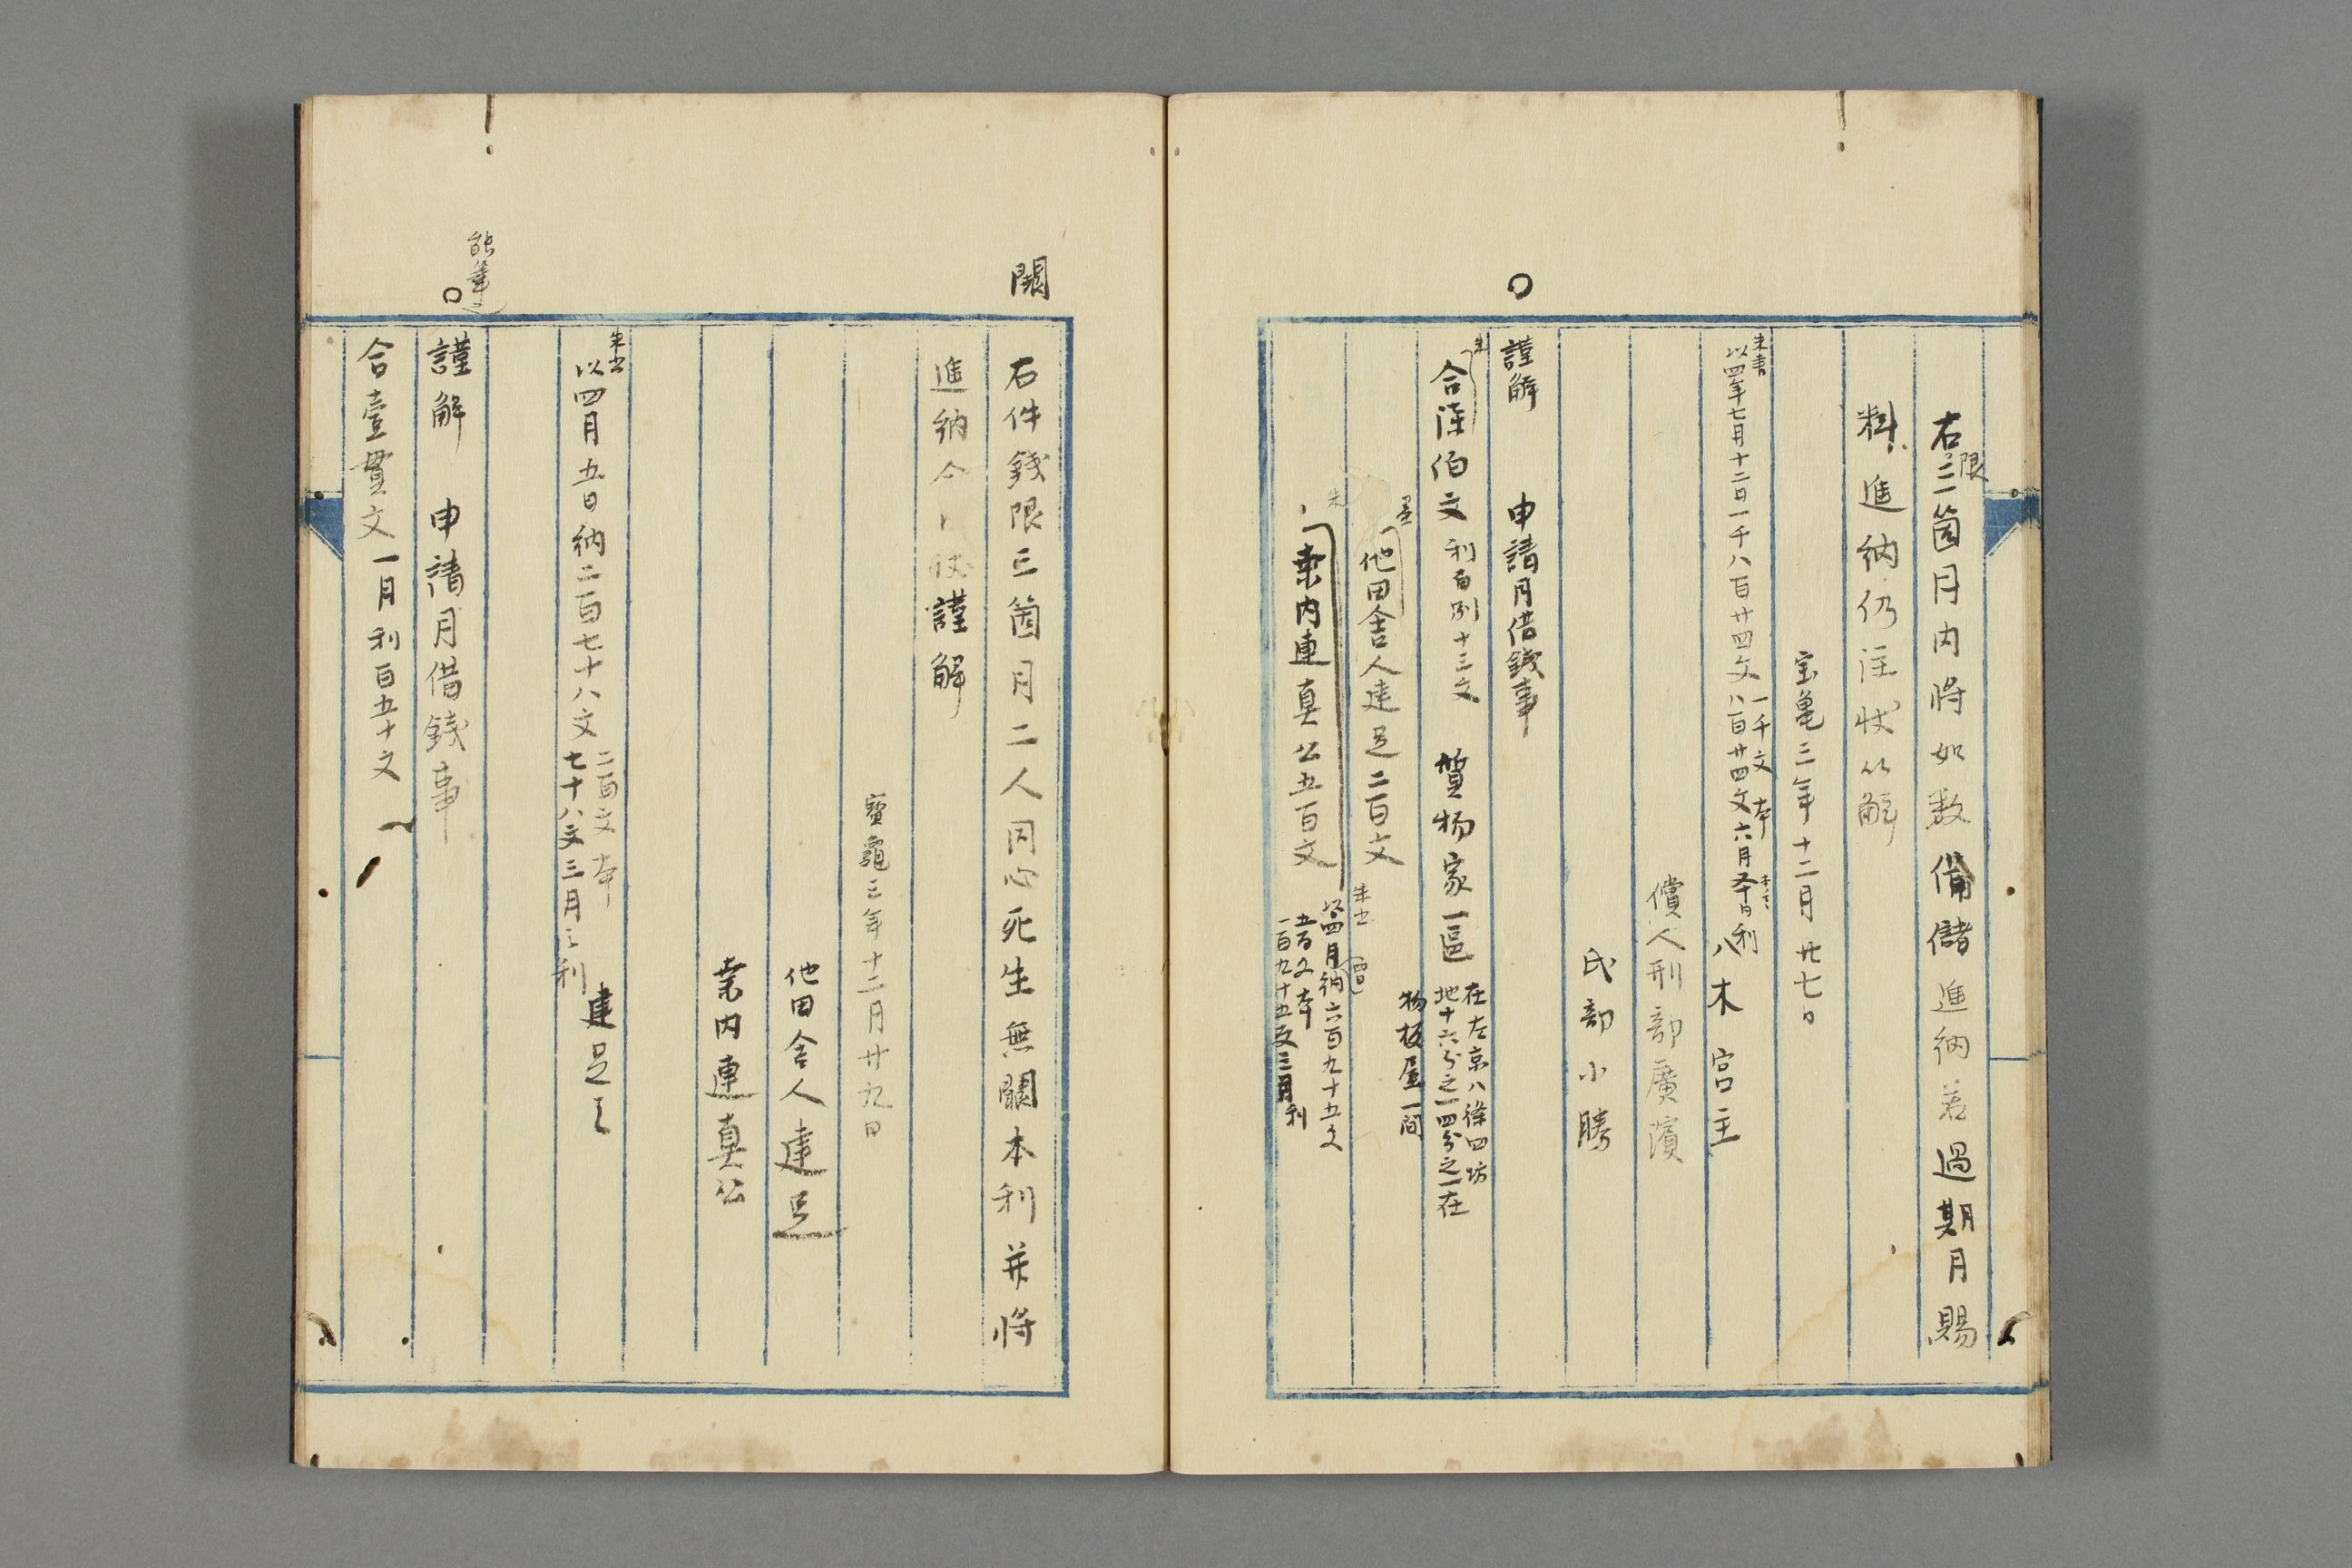 右限三箇月内将如数備儲進納若過期月賜
料進納仍注状以解
宝亀三年十二月廿七日
朱書
以四年七月十二日一千八百廿四文
一千文本
八百廿四文六月
利
八木宮主
償人刑部廣濱
氏部小勝
謹解　申請月借銭事
朱
合漆伯文　利百別十三文　質物家一區
在左京八條四坊
地十六分之一四分之一在
物板屋一間
他田舎人建足二百文
朱
桑内連真公五百文
朱書
以四月納六百九十五文
五百文本
一百九十五文三月利
闕
右件錢限三箇月二人同心死生無闕本利并将
進納
謹解
寶龜三年十二月廿九日
他田舎人建足
桑内連真公
朱書
以四月五日納二百七十八文
二百文本
七十八文三月之利
建足
謹解　申請月借錢事
合壹貫文　一月利百五十文